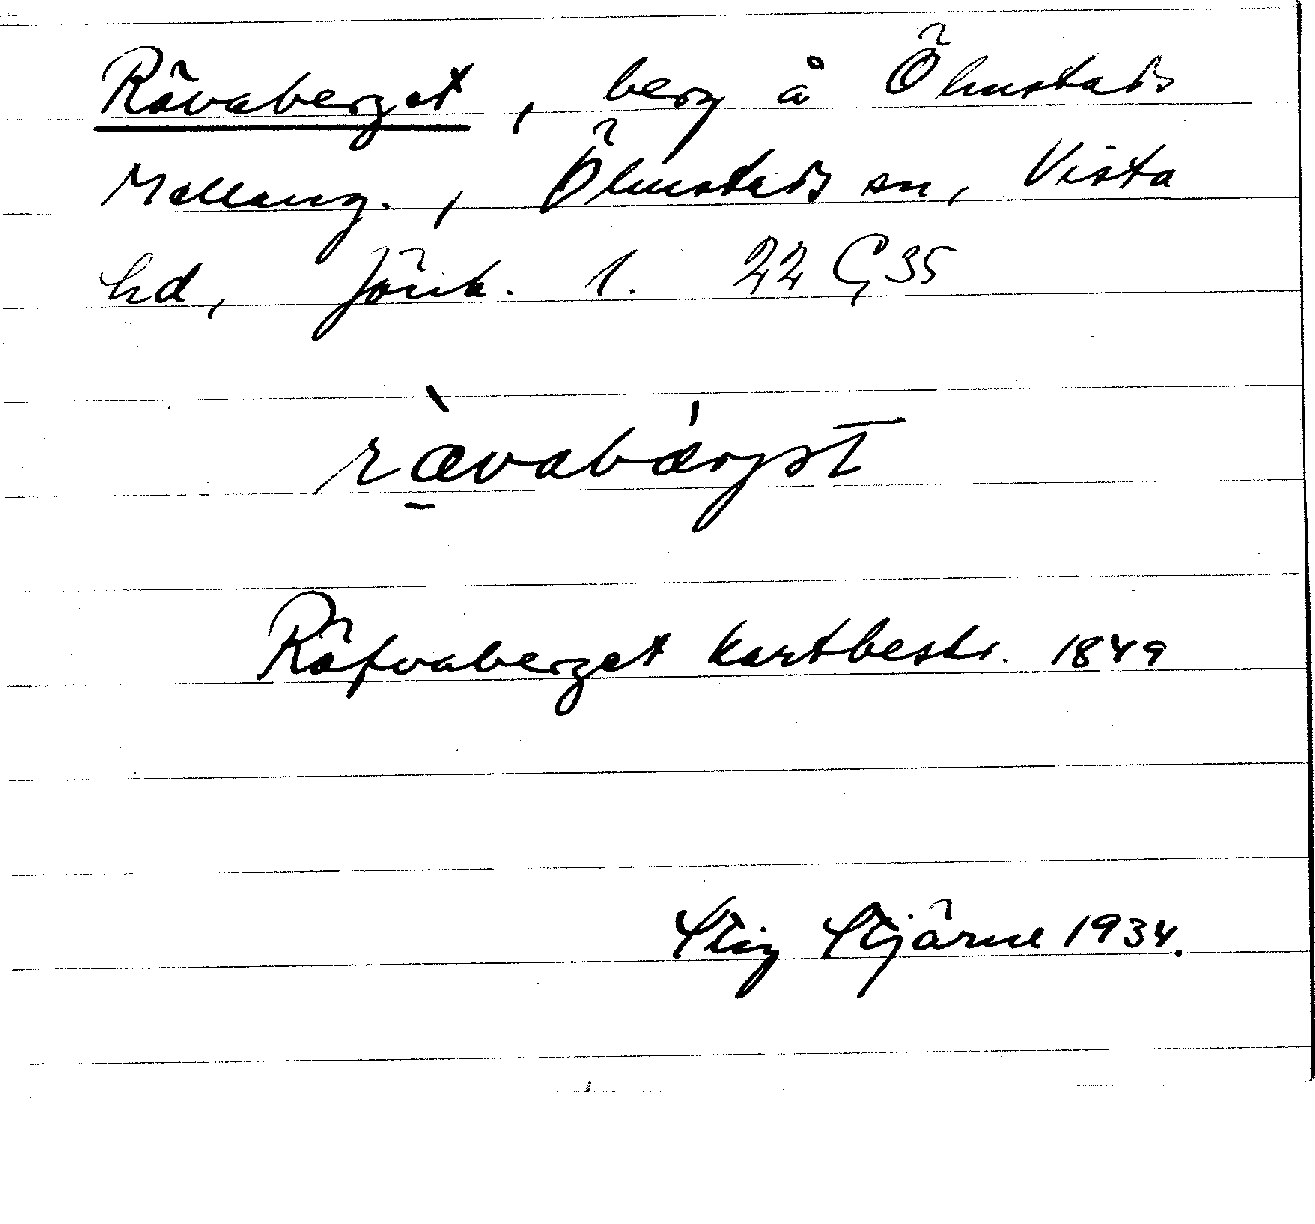 Rävaberget, berg å Ölmstads
Mellang., Ölmstads sn, Vista
hd, Jönk. l. 22 G 35
rævabærgət
Räfvaberget kartbeskr. 1849
Stig Stjärne 1934.